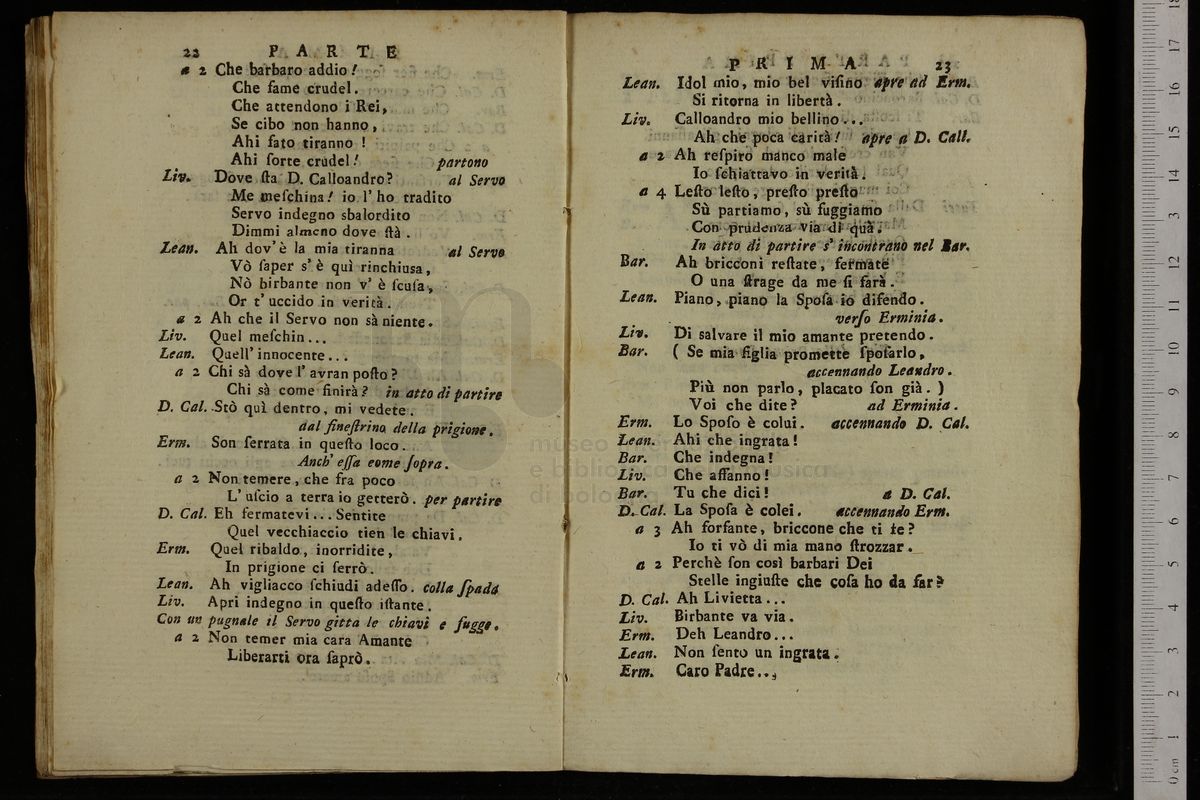 22 PARTE
a 2 Che barbaro addio!
Che fame crudel.
Che attendono i Rei,
Se cibo non hanno,
Ahi fato tiranno!
Ahi ſorte crudel! partono
Liv. Dove ſta D. Calloandro? al Servo
Me meſchina! io l' ho tradito
Servo indegno sbalordito
Dimmi almeno dove ſtà.
Lean. Ah dov' è la mia tiranna al Servo
Vò ſaper s' è quì rinchiusa,
Nò birbante non v' è ſcuſa,
Or t' uccido in verità.
a 2 Ah che il Servo non sà niente.
Liv. Quel meſchin...
Lean. Quell' innocente...
a 2 Chi sà dove l' avran poſto?
Chi sà come finirà? in atto di partire
D. Cal. Stò quì dentro, mi vedete.
dal fineſtrino della prigione.
Erm. Son ſerrata in queſto loco.
Anch' eſſa come ſopra.
a 2 Non temere, che fra poco
L' uſcio a terra io getterò. per partire
D. Cal. Eh fermatevi... Sentite
Quel vecchiaccio tien le chiavi.
Erm. Quel ribaldo, inorridite,
In prigione ci ſerrò.
Lean. Ah vigliacco ſchiudi adeſſo. colla ſpada
Liv. Apri indegno in queſto iſtante.
Con un pugnale il Servo gitta le chiavi e fugge.
a 2 Non temer mia cara Amante
Liberarti ora ſaprò.
PRIMA 23
Lean. Idol mio, mio bel viſino apre ad Erm.
Si ritorna in libertà.
Liv. Calloandro mio bellino...
Ah che poca carità! apre a D. Call.
a 2 Ah reſpiro manco male
Io ſchiattavo in verità.
a 4 Leſto leſto, preſto preſto
Sù partiamo, sù fuggiamo
Con prudenza via di quà.
In atto di partire s' incontrano nel Bar.
Bar. Ah bricconi reſtate, fermate
O una ſtrage da me ſi farà.
Lean. Piano, piano la Spoſa io difendo.
verſo Erminia.
Liv. Di salvare il mio amante pretendo.
Bar. ( Se mia figlia promette ſpoſarlo,
accennando Leandro.
Più non parlo, placato ſon già. )
Voi che dite? ad Erminia.
Erm. Lo Spoſo è colui. accennando D. Cal.
Lean. Ahi che ingrata!
Bar. Che indegna!
Liv. Che affanno!
Bar. Tu che dici! a D. Cal.
D. Cal. La Spoſa è colei. accennando Erm.
a 3 Ah forfante, briccone che ti fe?
Io ti vò di mia mano ſtrozzar.
a 2 Perchè ſon così barbari Dei
Stelle ingiuſte che coſa ho da far?
D. Cal. Ah Livietta...
Liv. Birbante va via.
Erm. Deh Leandro...
Lean. Non ſento un ingrata.
Erm. Caro Padre...